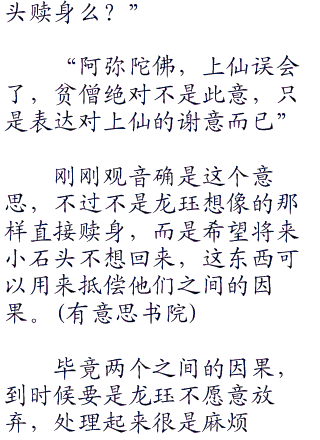 头赎身么？”
“阿弥陀佛，上仙误会
了，贫僧绝对不是此意，只
是表达对上仙的谢意而已”
刚刚观音确是这个意
思，不过不是龙珏想像的那
样直接赎身，而是希望将来
小石头不想回来，这东西可
以用来抵偿他们之间的因
果。(有意思书院)
毕竟两个之间的因果，
到时候要是龙珏不愿意放
弃，处理起来很是麻烦